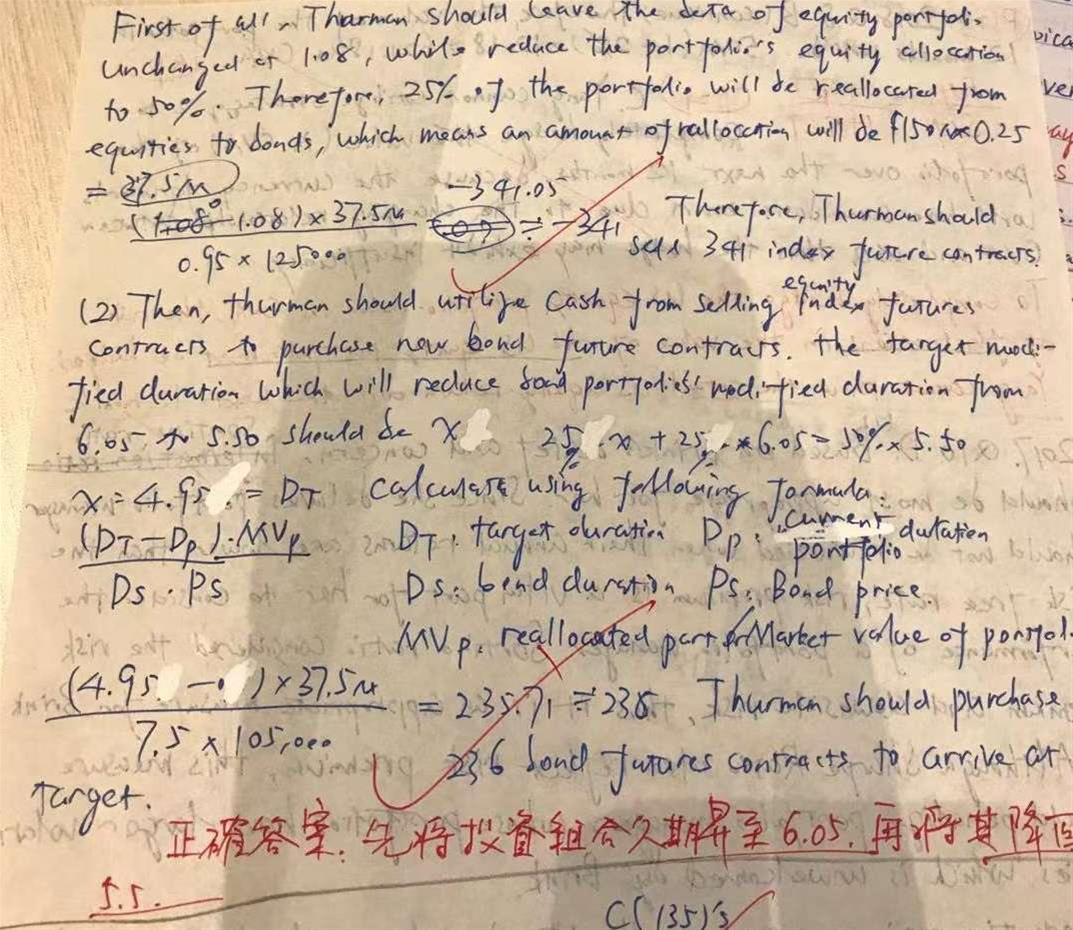 First of all, Thurman should leave the beta of equity portfolio
unchanged at 1.08, while reduce the portfolio's equity allocation
to 50%. Therefore, 25% of the portfolio will be reallocated from
equities to bonds, which means an amount of rallocation will be £150M×0.25
= 37.5M
-341.05
(0 - 1.08) × 37.5M / 0.95 × 125000 ≒ -341 Therefore, Thurman should
sell 341 index future contracts.
(2) Then, thurman should utilize cash from selling equity index futures
contracts to purchase new bond future contracts. the target modi-
fied duration which will reduce bond portfolios' modified duration from
6.05 to 5.50 should be X 25% · x + 25% * 6.05 = 50% × 5.50
X = 4.95 = DT calculate using following formula:
(DT - Dp) · MVp / Ds · Ps DT: target duration Dp: current portfolio dutation
Ds: bond duration Ps: Bond price
MVp: reallocated part of Market value of portfol.
(4.95 - 0) × 37.5M / 7.5 × 105,000 = 235.71 ≒ 236 Thurman should purchase
236 bond futures contracts to arrive at
target.
正确答案: 先将投资组合久期昇至 6.05. 再将其降回
5.5.
C(135)'s